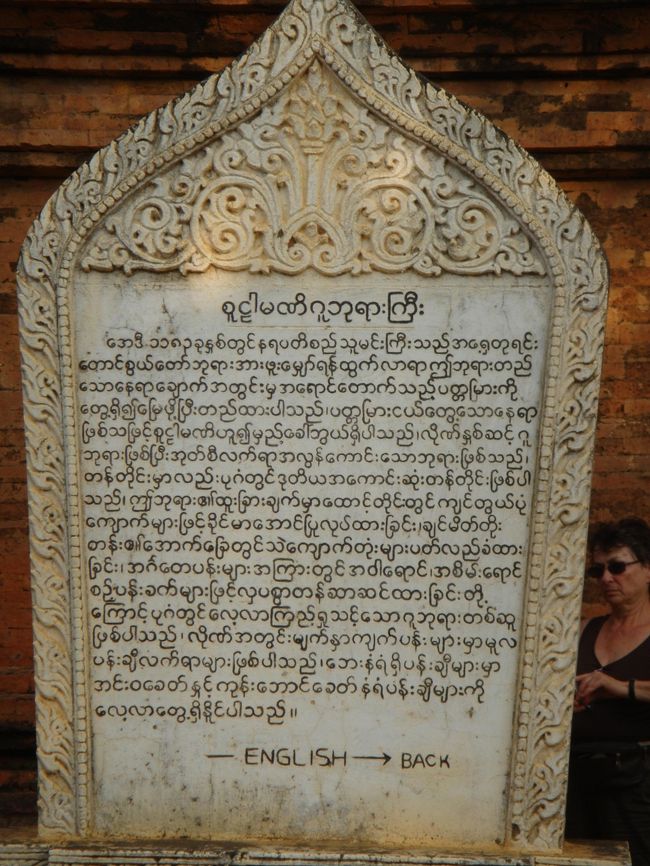 စူဠါမဏိဂူဘုရားကြီး
အေဒီ ၁၁၈၃ခုနှစ်တွင်နရပတိစည်သူမင်းကြီးသည်အရှေ့တုရင်း
တောင်စွယ်တော်ဘုရားအားဖူးမျှော်ရန်ထွက်လာရာဤဘုရားတည်
သောနေရာချောက်အတွင်းမှအရောင်တောက်သည့်ပတ္တမြားကို
တွေ့ရှိ၍မြေဖို့ပြီးတည်ထားပါသည်၊ပတ္တမြားငယ်တွေ့သောနေရာ
ဖြစ်သဖြင့်စူဠါမဏိဟူ၍မှည့်ခေါ်ဘွယ်ရှိပါသည်၊လိုဏ်နှစ်ဆင့်ဂူ
ဘုရားဖြစ်ပြီးအုတ်စီလက်ရာအလွန်ကောင်းသောဘုရားဖြစ်သည်၊
တန်တိုင်းမှာလည်းပုဂံတွင်ဒုတိယအကောင်းဆုံးတန်တိုင်းဖြစ်ပါ
သည်၊ဤဘုရား၏ထူးခြားချက်မှာထောင့်တိုင်းတွင်ကျင်တွယ်ပုံ
ကျောက်များဖြင့်ခိုင်မာအောင်ပြုလုပ်ထားခြင်း၊ချင်မိတ်တိုး
တန်း၏အောက်ခြေတွင်သဲကျောက်တုံးများပတ်လည်ခံထား
ခြင်း၊အင်္ဂတေပန်းများအကြားတွင်အဝါရောင်၊အစိမ်းရောင်
စဉ့်ပန်းခက်များဖြင့်လှပစွာတန်ဆာဆင်ထားခြင်းတို့
ကြောင့်ပုဂံတွင်လေ့လာကြည့်ရှုသင့်သောဂူဘုရားတစ်ဆူ
ဖြစ်ပါသည်၊လိုဏ်အတွင်းမျက်နှာကျက်ပန်းများမှာမူလ
ပန်းချီလက်ရာများဖြစ်ပါသည်၊ဘေးနံရံရှိပန်းချီများမှာ
အင်းဝခေတ်နှင့်ကုန်းဘောင်ခေတ်နံရံပန်းချီများကို
လေ့လာတွေ့ရှိနိုင်ပါသည်။
— ENGLISH → BACK